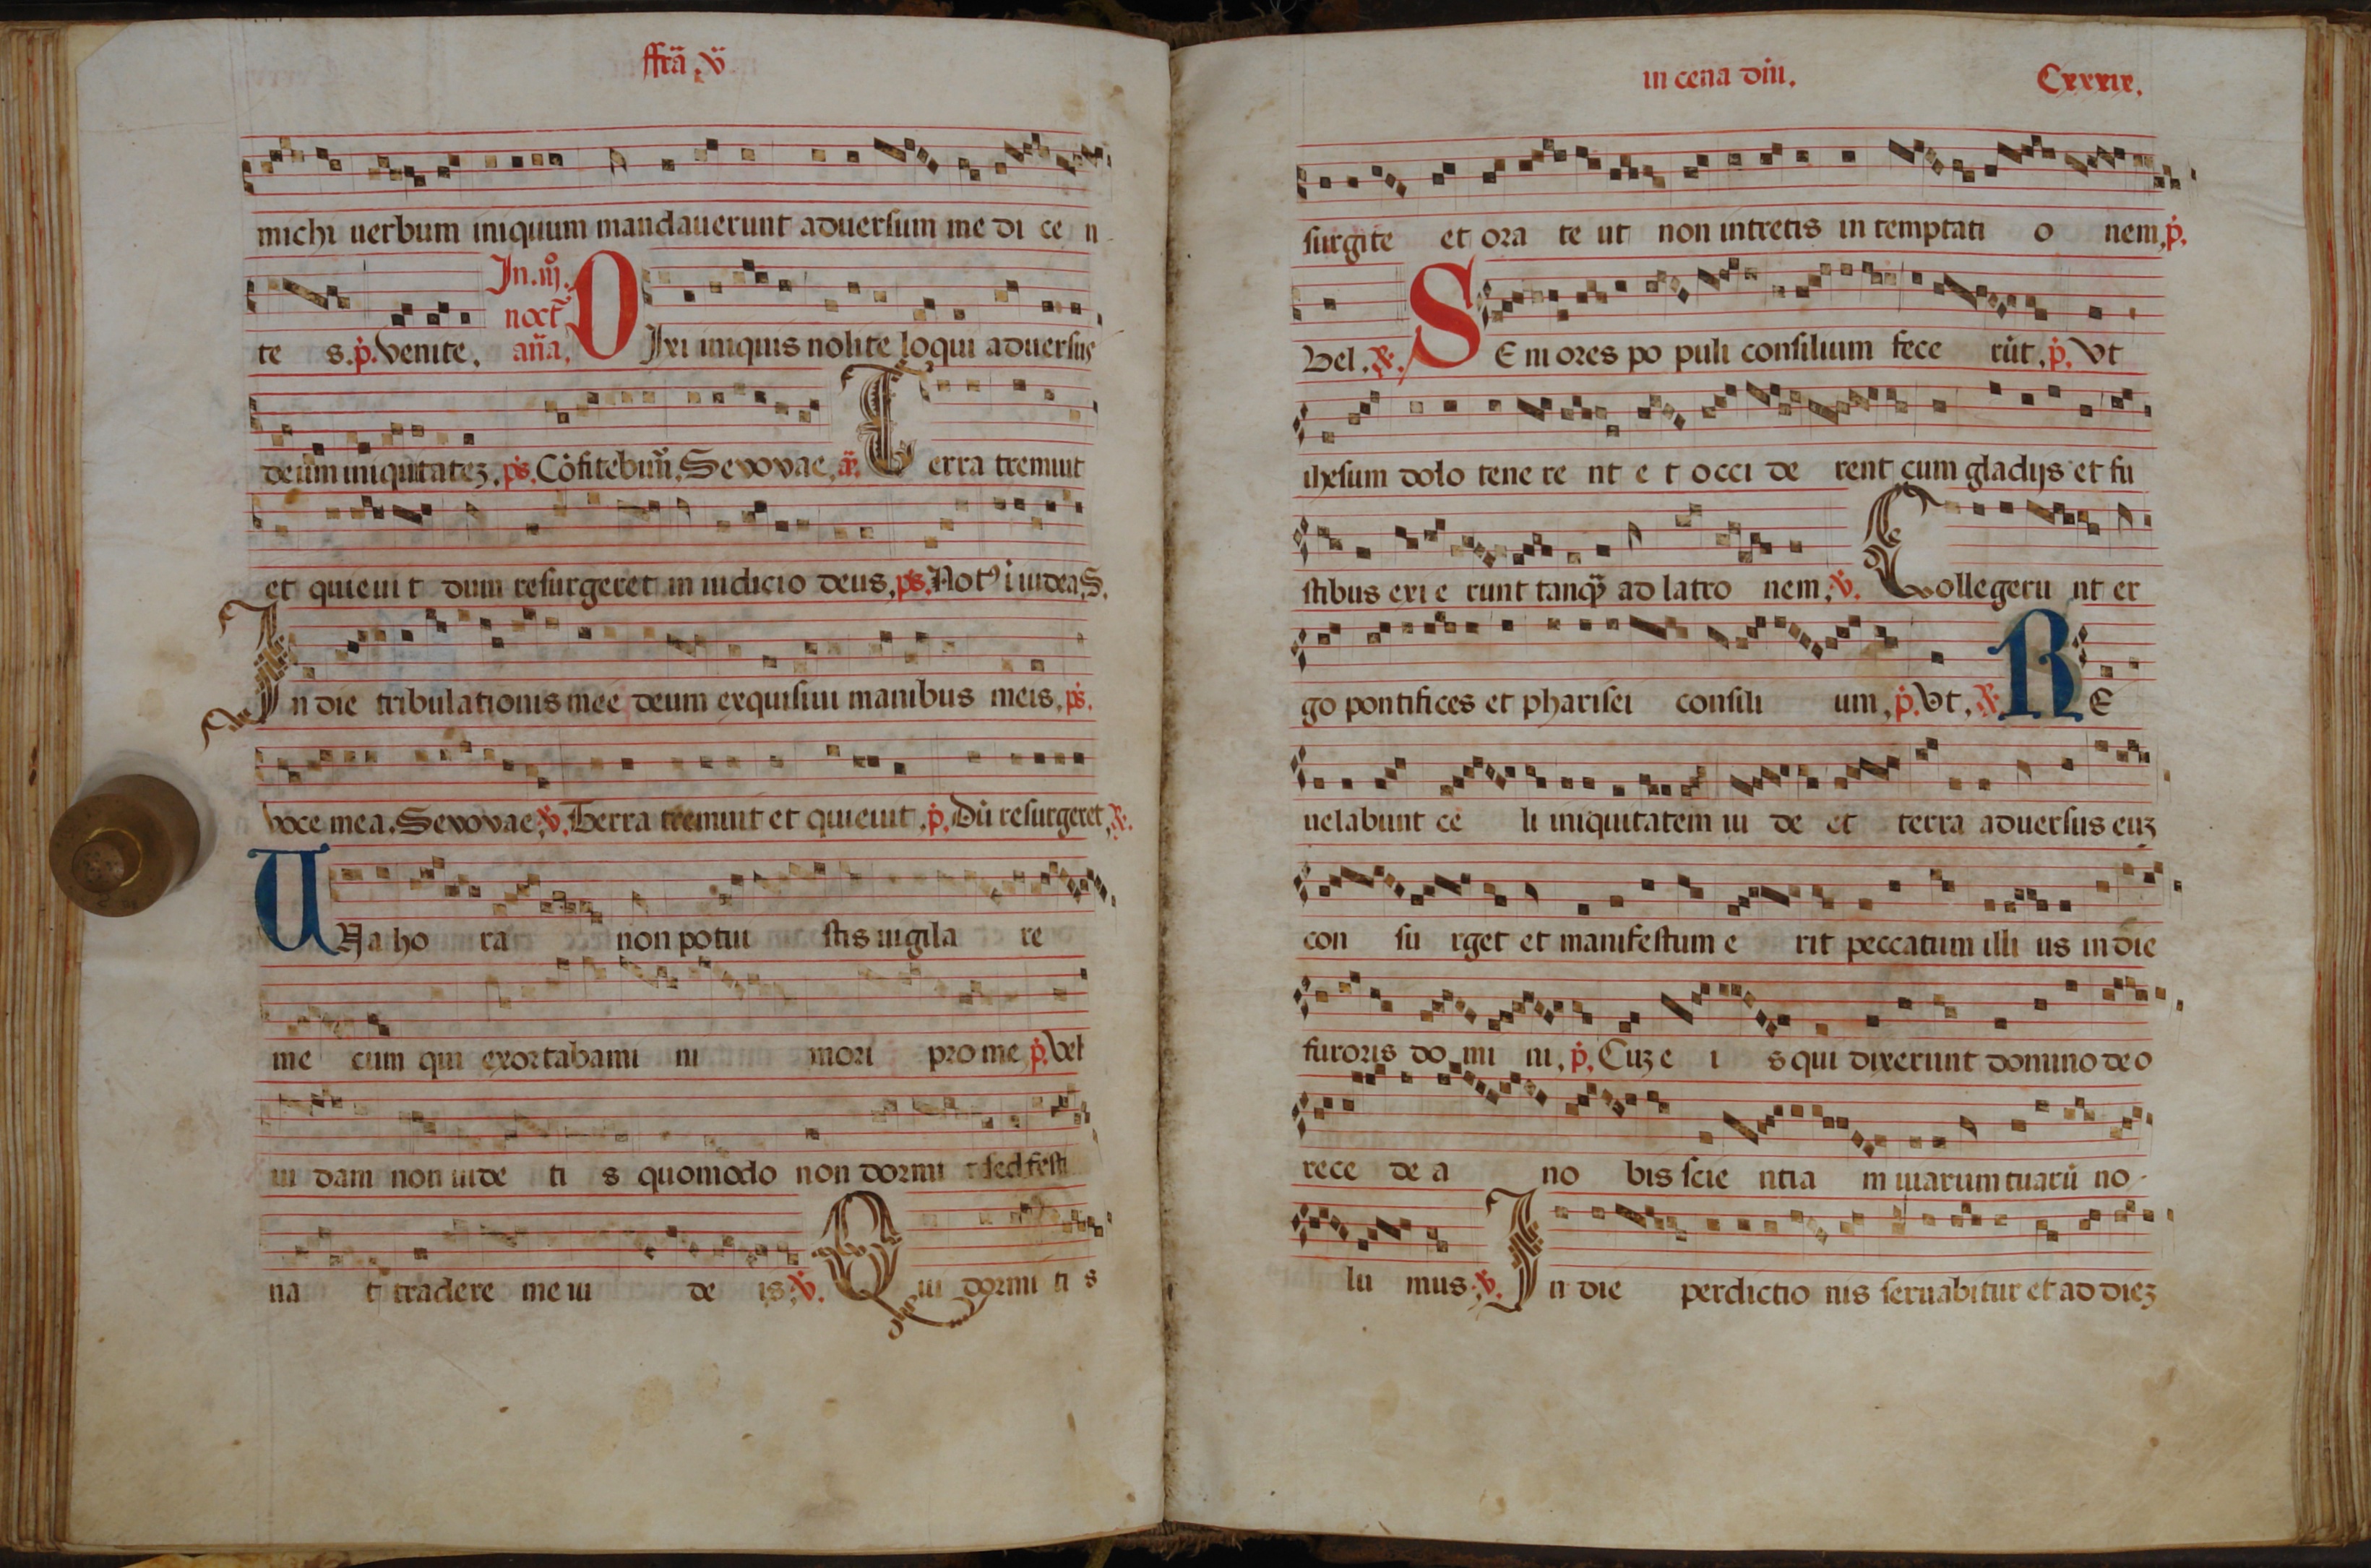 ffrã .v̈
michi uerbum iniquum mandauerunt aduersum me di ce n
In .iij.
te s. ṗ. Venite. noct̃ añа. D Ixi iniquis nolite loqui aduersus
deum iniquitatez. p̄s. Cōfitebim̄. Sevovae. a᷑. Terra tremuit
et quieuit dum resurgeret in iudicio deus. p̄s. Notꝰ i iudea. S.
In die tribulationis mee deum exquisiui manibus meis. p̄s.
voce mea. Sevovae. v̇. Terra tremuit et quieuit. ṗ. Dū resurgeret. ℟.
UNa ho ra non potui stis uigila re
me cum qui exortabami ni mori pro me ṗ. Vel
iu dam non uide ti s quomodo non dormi t sed festi
na t tradere me iu de is. v̇. Qui dormi ti s
in cena dñi. Cxxxix.
surgite et ora te ut non intretis in temptati o nem. ṗ.
Vel. ℟. SEniores po puli consilium fece rūt. ṗ. Vt
ihesum dolo tene re nt e t occi de rent cum gladijs et fu
stibus exi e runt tanq̄ ad latro nem. v̇. Collegeru nt er
go pontifices et pharisei consili um. ṗ. Vt. ℟. RE
uelabunt ce li iniquitatem iu de et terra aduersus euz
con su rget et manifestum e rit peccatum illi us in die
furoris do mi ni. ṗ. Cuz e i s qui dixerunt domino deo
rece de a no bis scie ntia m uiarum tuarū no-
lu mus. v̇. In die perdictio nis seruabitur et ad diez